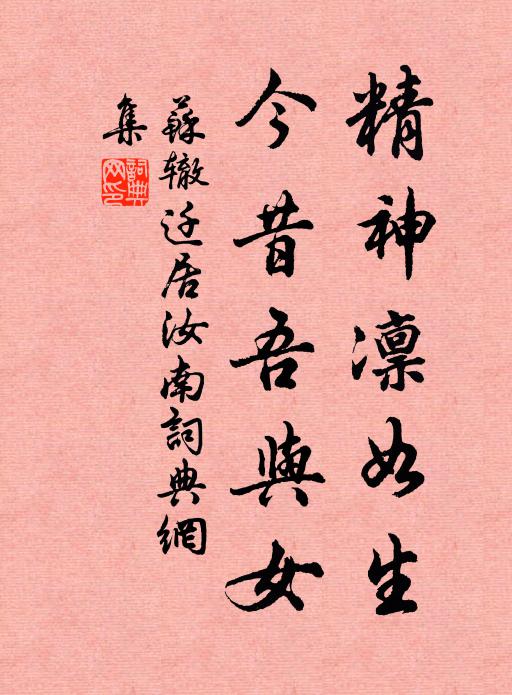 精神凛如生
今昔吾與女
蘇辙迁居汝南詞典網
集
詞典网印